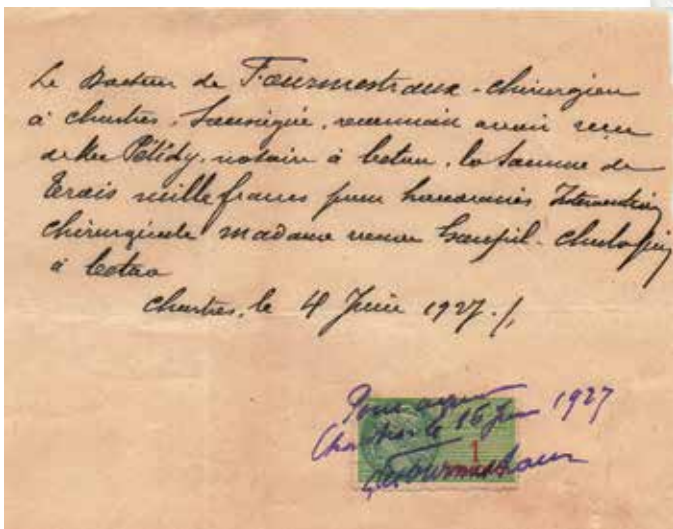 Le Docteur de Fourmestraux - chirurgien
à chartres, Soussigné, reconnait avoir reçu
de Me Pétidy, notaire à , la Somme de
trois mille francs pour honoraires Intervention
chirurgicale madame veuve Goupil -
à
chartres, le 4 Juin 1927./.
Pour acquit
Chartres le 16 Juin 1927
1
de Fourmestraux